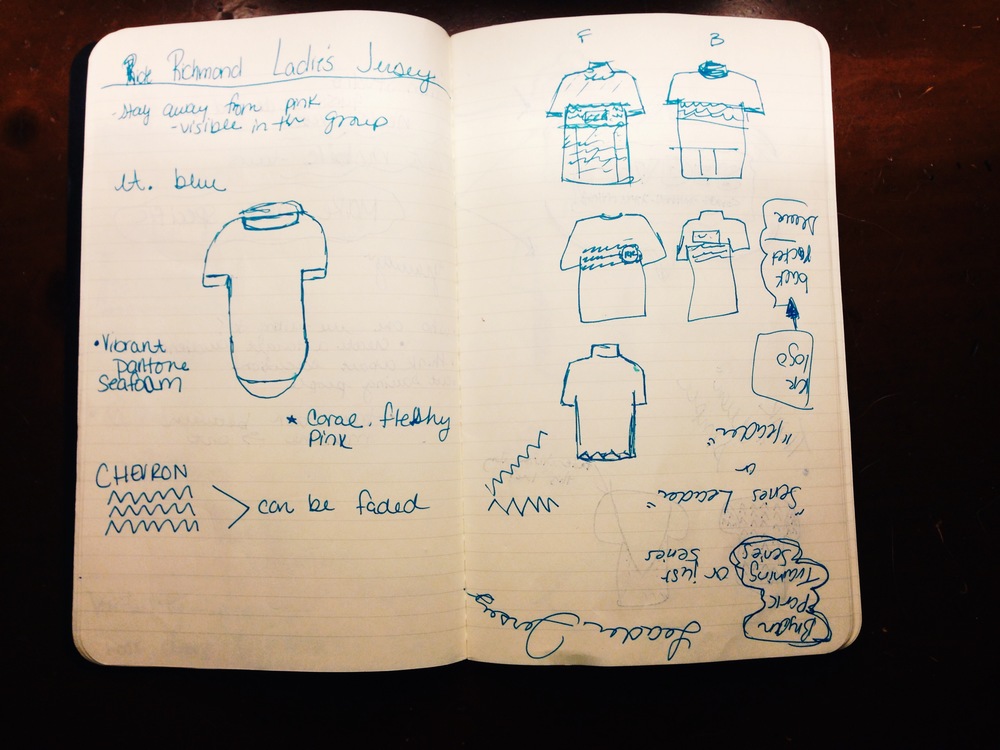 Ride Richmond Ladies Jersey
- stay away from pink
- visible in the group
lt. blue
• Vibrant
pantone
Seafoam
* Coral . fleshy
pink
CHEVRON
can be faded
F
B
Leader Jersey
Bryan
Park
Training
Series
or just
series
"Series Leader"
or
"Leader"
RR
logo
back
pocket
sleeve